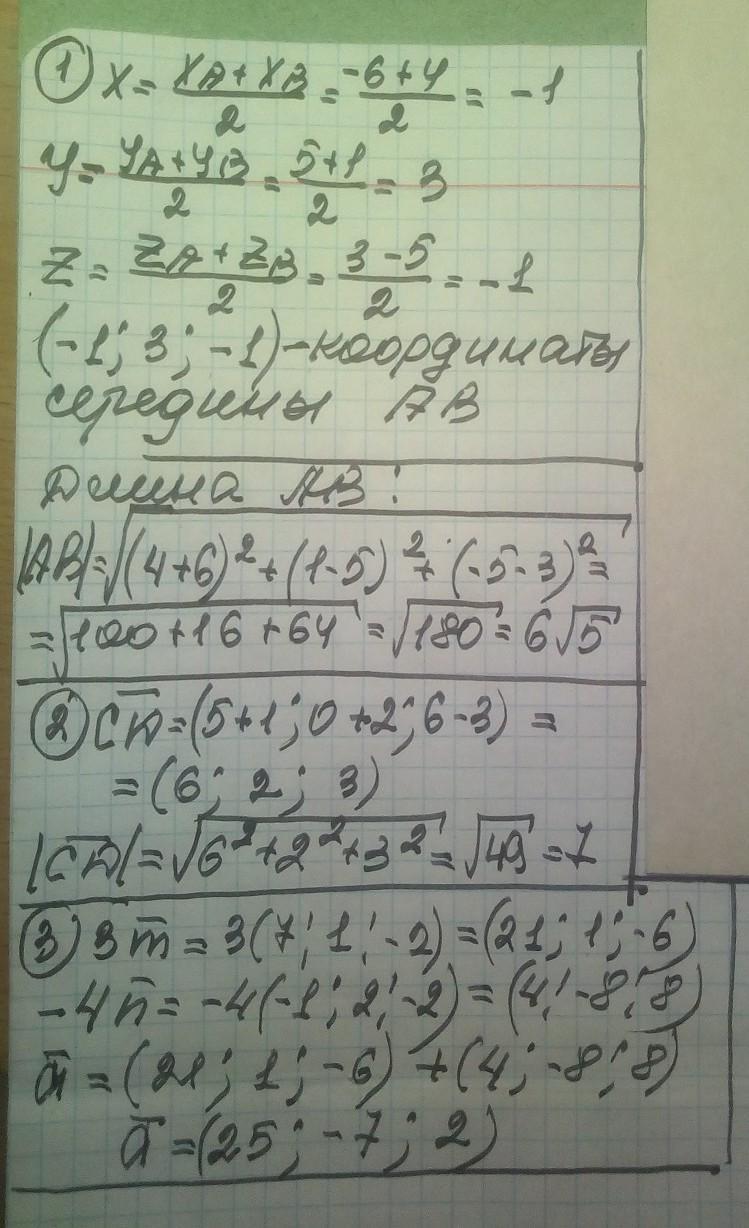 ① X = (XA + XB)/2 = (-6+4)/2 = -1
y = (yA + yB)/2 = (5+1)/2 = 3
Z = (ZA + ZB)/2 = (3-5)/2 = -1
(-1; 3; -1) - координаты
середины AB
Длина AB:
|AB| = √((4+6)² + (1-5)² + (-5-3)²) =
= √(100+16+64) = √180 = 6√5
② C̅D̅ = (5+1; 0+2; 6-3) =
= (6; 2; 3)
|C̅D̅| = √(6²+2²+3²) = √49 = 7
③ 3m̅ = 3(7; 1; -2) = (21; 1; -6)
-4n̅ = -4(-1; 2; -2) = (4; -8; 8)
a̅ = (21; 1; -6) + (4; -8; 8)
a̅ = (25; -7; 2)